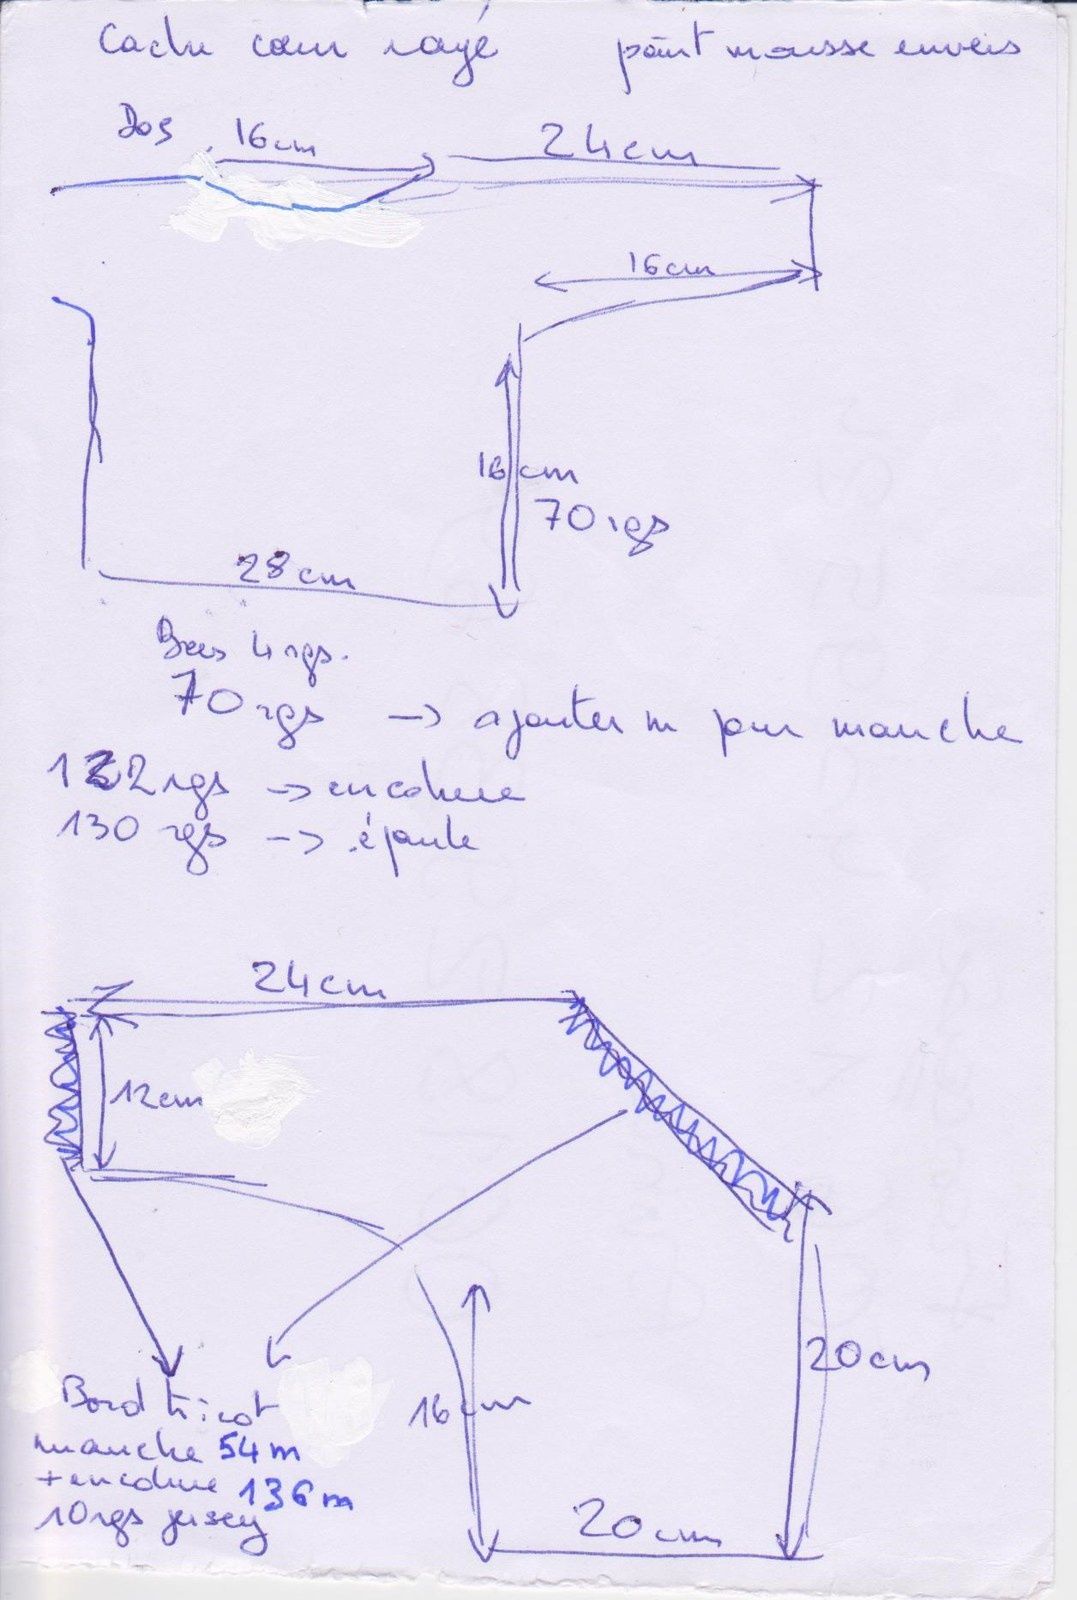 Cache cœur rayé point mousse envers
Dos 16cm 24cm
16cm
16cm
70 rgs
28cm
4 rgs.
70 rgs -> ajouter m pour manche
132 rgs -> encolure
130 rgs -> épaule
24cm
12cm
20cm
16cm
Bord tricot
manche 54 m
+ encolure 136 m
10 rgs jersey
20cm